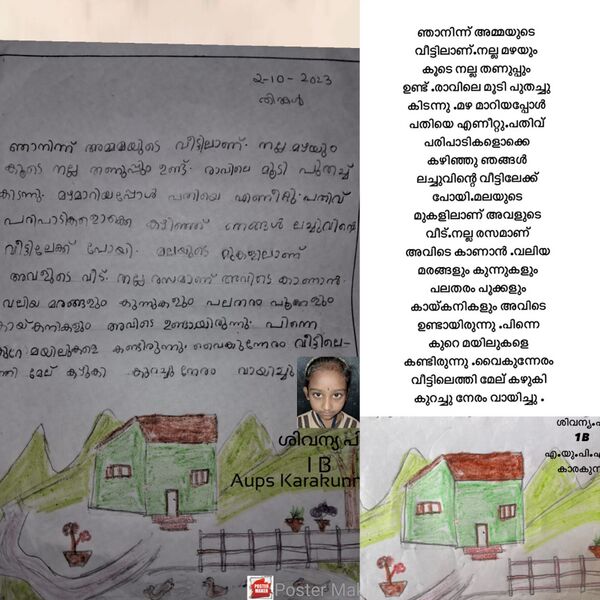 2-10-2023
തിങ്കൾ
ഞാനിന്ന് അമ്മയുടെ വീട്ടിലാണ്. നല്ല മഴയും
കൂടെ നല്ല തണുപ്പും ഉണ്ട്. രാവിലെ മൂടി പുതച്ച്
കിടന്നു. മഴമാറിയപ്പോൾ പതിയെ എണീറ്റു. പതിവ്
പരിപാടികളൊക്കെ കഴിഞ്ഞ് ഞങ്ങൾ ലച്ചുവിന്റെ
വീട്ടിലേക്ക് പോയി. മലയുടെ മുകളിലാണ്
അവളുടെ വീട്. നല്ല രസമാണ് അവിടെ കാണാൻ.
വലിയ മരങ്ങളും കുന്നുകളും പലതരം പൂക്കളും
കായ്കനികളും അവിടെ ഉണ്ടായിരുന്നു. പിന്നെ
കുറേ മയിലുകളെ കണ്ടിരുന്നു. വൈകുന്നേരം വീട്ടിലെ-
ത്തി മേല് കഴുകി കുറച്ചു നേരം വായിച്ചു
ശിവന്യ.പി
1 B
Aups Karakunn
ഞാനിന്ന് അമ്മയുടെ
വീട്ടിലാണ്.നല്ല മഴയും
കൂടെ നല്ല തണുപ്പും
ഉണ്ട് .രാവിലെ മൂടി പുതച്ചു
കിടന്നു .മഴ മാറിയപ്പോൾ
പതിയെ എണീറ്റു.പതിവ്
പരിപാടികളൊക്കെ
കഴിഞ്ഞു ഞങ്ങൾ
ലച്ചുവിന്റെ വീട്ടിലേക്ക്
പോയി.മലയുടെ
മുകളിലാണ് അവളുടെ
വീട്.നല്ല രസമാണ്
അവിടെ കാണാൻ .വലിയ
മരങ്ങളും കുന്നുകളും
പലതരം പൂക്കളും
കായ്കനികളും അവിടെ
ഉണ്ടായിരുന്നു .പിന്നെ
കുറെ മയിലുകളെ
കണ്ടിരുന്നു .വൈകുന്നേരം
വീട്ടിലെത്തി മേല് കഴുകി
കുറച്ചു നേരം വായിച്ചു .
ശിവന്യ.പ
1B
എ.യു.പി.എ
കാരകുന
POSTER MAKER
Poster Mak